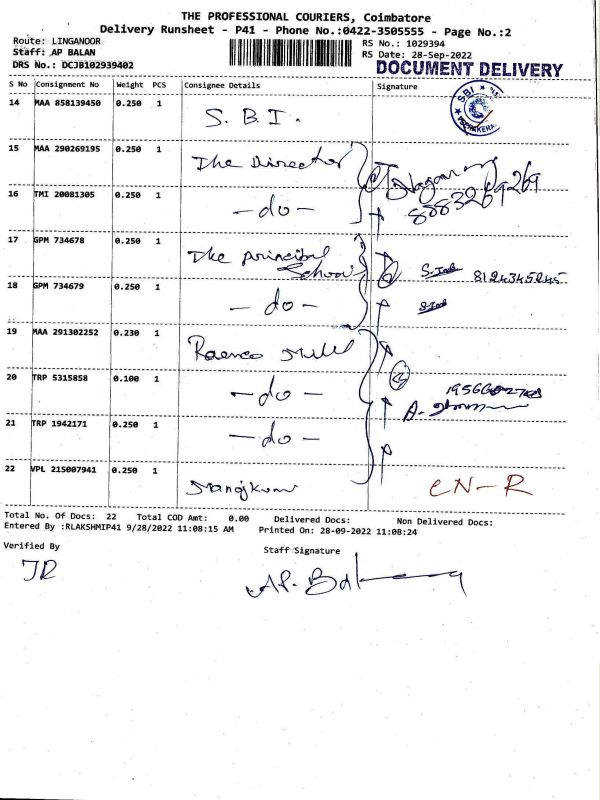 THE PROFESSIONAL COURIERS, Coimbatore
Delivery Runsheet - P41 - Phone No.:0422-3505555 - Page No.:2
Route: LINGANOOR
RS No.: 1029394
Staff: AP BALAN
RS Date: 28-Sep-2022
DRS No.: DCJB102939402
DOCUMENT DELIVERY
S No Consignment No Weight PCS Consignee Details Signature
14 MAA 858139450 0.250 1 S.B.I. SBI
15 MAA 290269195 0.250 1 The Director
16 TMI 20081305 0.250 1 -do- 8883269269
17 GPM 734678 0.250 1 The principal School 8124345245
18 GPM 734679 0.250 1 -do-
19 MAA 291302252 0.230 1
20 TRP 5315858 0.100 1 -do-
21 TRP 1942171 0.250 1 -do-
22 VPL 215007941 0.250 1 CN-R
Total No. Of Docs: 22 Total COD Amt: 0.00 Delivered Docs: Non Delivered Docs:
Entered By :RLAKSHMIP41 9/28/2022 11:08:15 AM Printed On: 28-09-2022 11:08:24
Verified By
Staff Signature
JR
AP. Bal